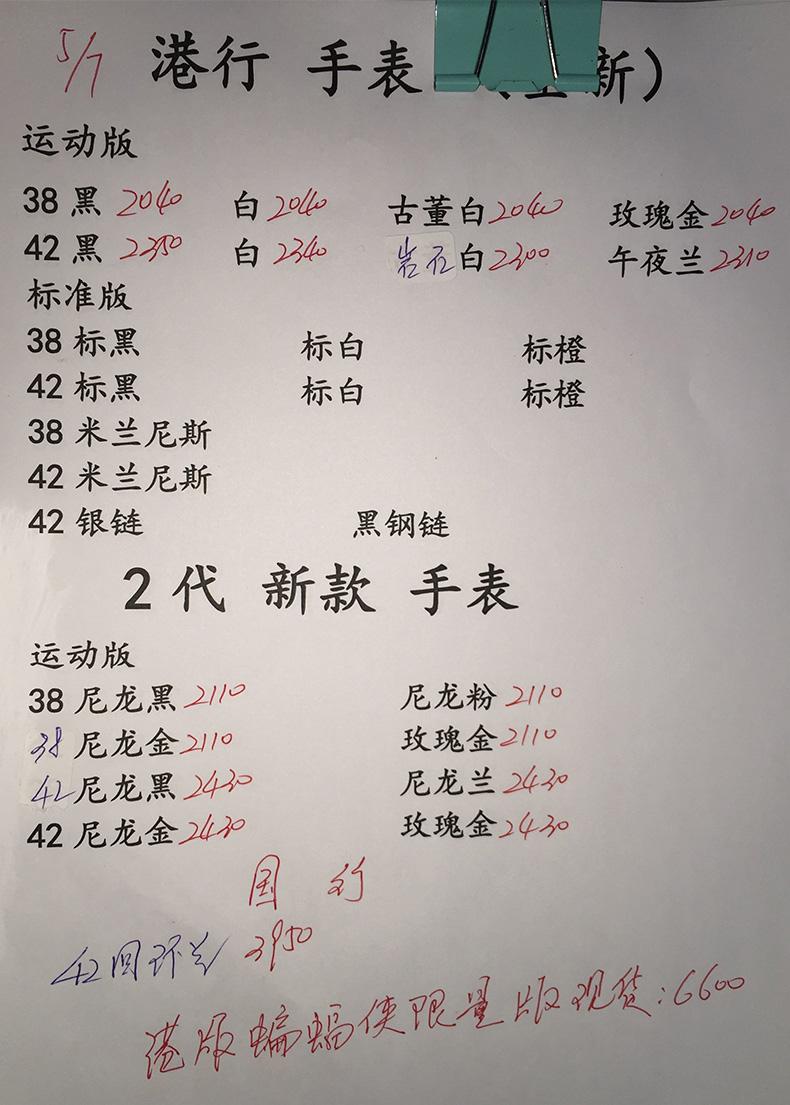 5/7 港行 手表 新）
运动版
38 黑 2040 白 2040 古董白 2040 玫瑰金 2040
42 黑 2350 白 2340 岩石白 2300 午夜兰 2310
标准版
38 标黑 标白 标橙
42 标黑 标白 标橙
38 米兰尼斯
42 米兰尼斯
42 银链 黑钢链
2代 新款 手表
运动版
38 尼龙黑 2110 尼龙粉 2110
38 尼龙金 2110 玫瑰金 2110
42 尼龙黑 2430 尼龙兰 2430
42 尼龙金 2430 玫瑰金 2430
国 行
42回环兰 3950
港版蝙蝠侠限量版现货：6600